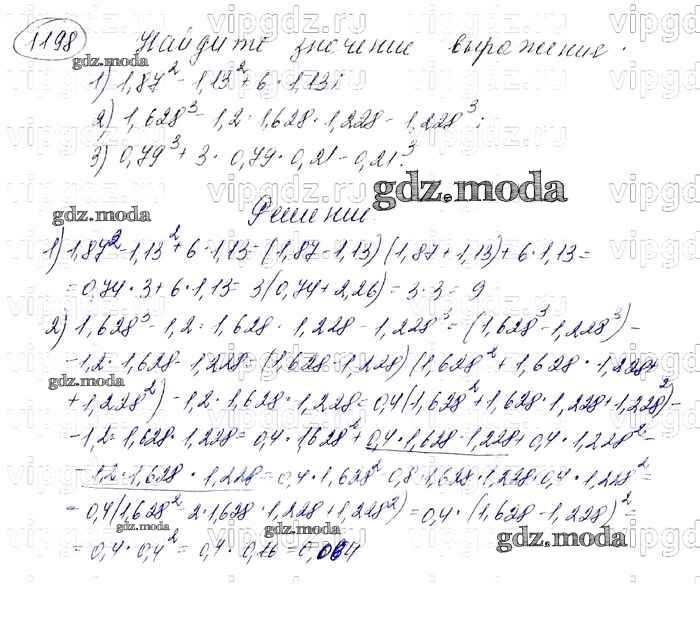 1198 Найдите значение выражения.
1) 1,87² - 1,13² + 6 · 1,13;
2) 1,628³ - 1,2 · 1,628 · 1,228 - 1,228³;
3) 0,79³ + 3 · 0,79 · 0,21 - 0,21³.
Решение
1) 1,87² - 1,13² + 6 · 1,13 = (1,87 - 1,13)(1,87 + 1,13) + 6 · 1,13 =
= 0,74 · 3 + 6 · 1,13 = 3(0,74 + 2,26) = 3 · 3 = 9
2) 1,628³ - 1,2 · 1,628 · 1,228 - 1,228³ = (1,628³ - 1,228³) -
- 1,2 · 1,628 · 1,228 = (1,628 - 1,228)(1,628² + 1,628 · 1,228 +
+ 1,228²) - 1,2 · 1,628 · 1,228 = 0,4(1,628² + 1,628 · 1,228 + 1,228²) -
- 1,2 · 1,628 · 1,228 = 0,4 · 1,628² + 0,4 · 1,628 · 1,228 + 0,4 · 1,228² -
- 1,2 · 1,628 · 1,228 = 0,4 · 1,628² - 0,8 · 1,628 · 1,228 · 0,4 · 1,228² =
= 0,4(1,628² - 2 · 1,628 · 1,228 + 1,228²) = 0,4 · (1,628 - 1,228)² =
= 0,4 · 0,4² = 0,4 · 0,16 = 0,064
gdz.moda
vipgdz.ru